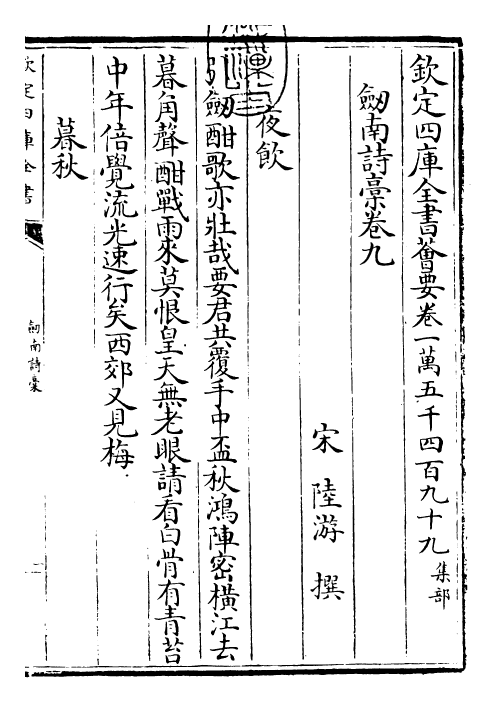 欽定四庫全書薈要卷一萬五千四百九十九 集部
劒南詩稾卷九
宋 陸游 撰
夜飲
引劒酣歌亦壯哉要君共覆手中盃秋鴻陣密橫江去
暮角聲酣戰雨來莫恨皇天無老眼請看白骨有青苔
中年倍覺流光速行矣西郊又見梅
暮秋
欽定四庫全書
劒南詩稾